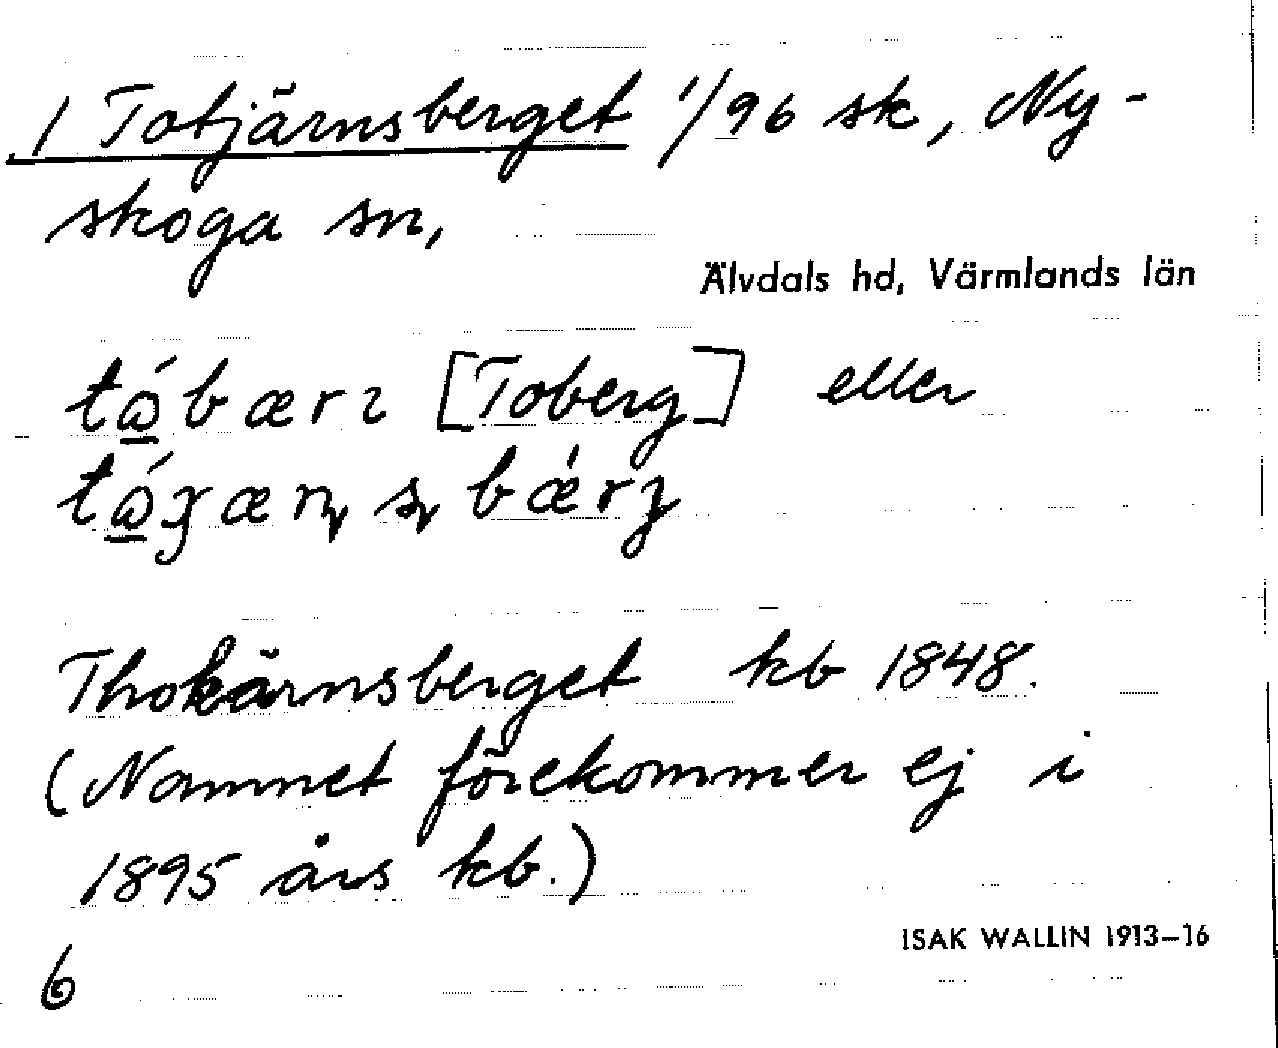 1 Totjärnsberget 1/96 sk, Ny-
skoga sn,
Älvdals hd, Värmlands län
[Toberg] eller
Thokärnsberget kb 1848.
(Namnet förekommer ej i
1895 års kb.)
ISAK WALLIN 1913–16
6